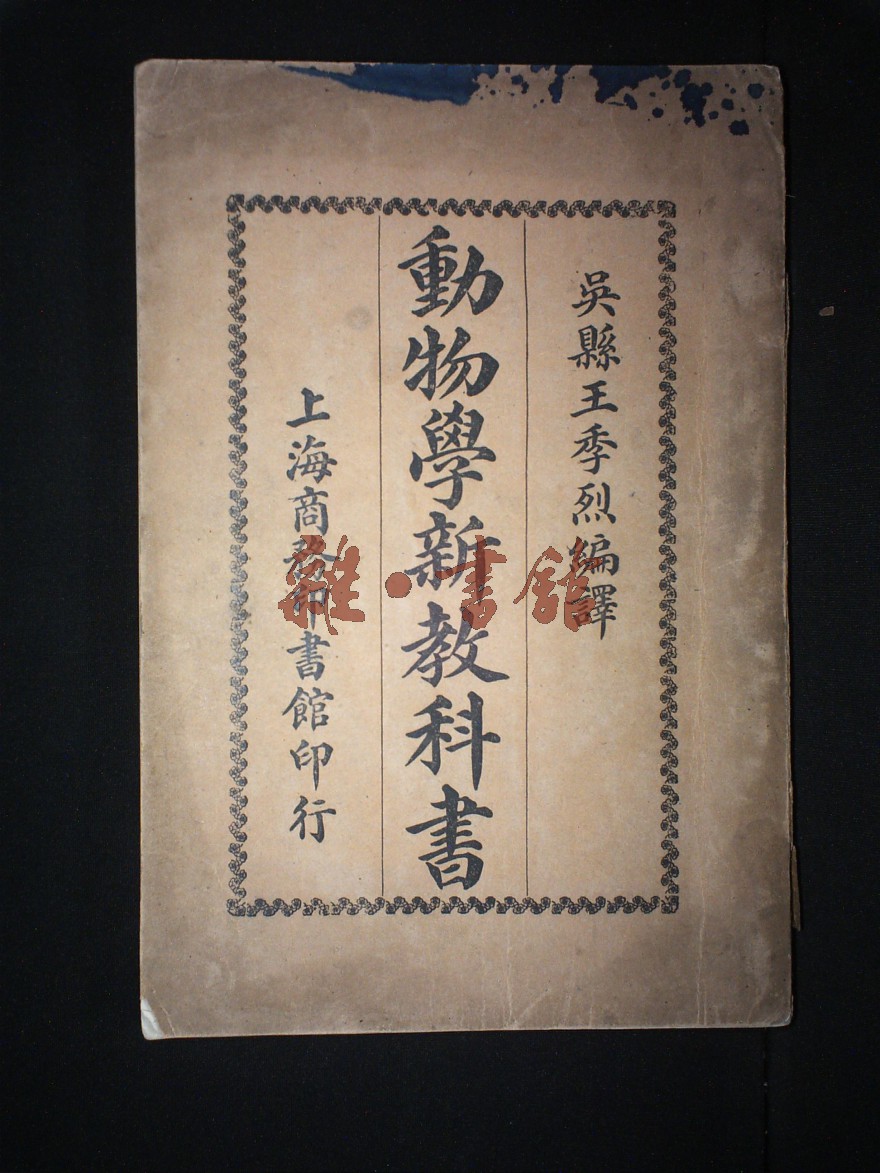 吳縣王季烈編譯
動物學新教科書
上海商務印書館印行
雜·書館